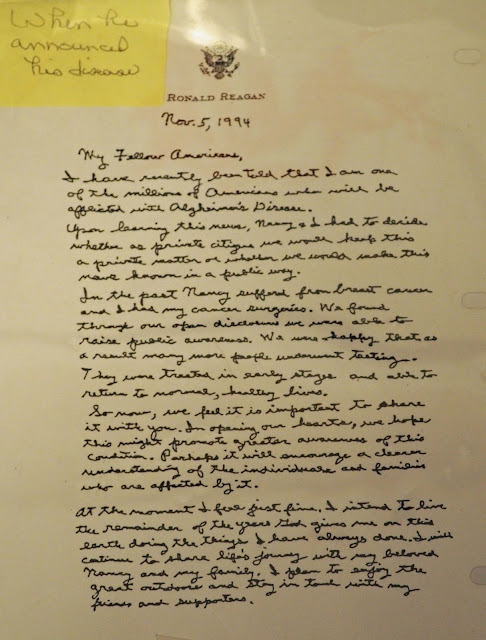 When he
announced
his disease
RONALD REAGAN
Nov. 5, 1994
My Fellow Americans,
I have recently been told that I am one
of the millions of Americans who will be
afflicted with Alzheimer's Disease.
Upon learning this news, Nancy & I had to decide
whether as private citizens we would keep this
a private matter or whether we would make this
news known in a public way.
In the past Nancy suffered from breast cancer
and I had my cancer surgeries. We found
through our open disclosures we were able to
raise public awareness. We were happy that as
a result many more people underwent testing.
They were treated in early stages and able to
return to normal, healthy lives.
So now, we feel it is important to share
it with you. In opening our hearts, we hope
this might promote greater awareness of this
condition. Perhaps it will encourage a clearer
understanding of the individuals and families
who are affected by it.
At the moment I feel just fine. I intend to live
the remainder of the years God gives me on this
earth doing the things I have always done. I will
continue to share life's journey with my beloved
Nancy and my family. I plan to enjoy the
great outdoors and stay in touch with my
friends and supporters.